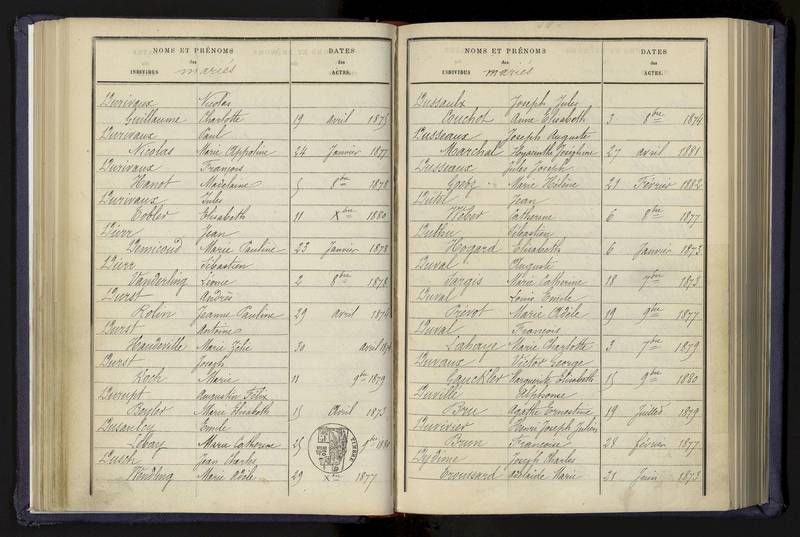 NOMS ET PRÉNOMS
des
INDIVIDUS mariés
DATES
des
ACTES.
Durivaux Nicolas
Guillaume Charlotte 19 avril 1875
Durivaux Paul
Nicolas Marie Appoline 24 Janvier 1877
Durivaux François
Hanot Madelaine 5 8bre 1878
Durivaux Jules
Cobler Elisabeth 11 Xbre 1880
Dürr Jean
Demicoud Marie Pauline 23 Janvier 1878
Dürr Sébastien
Vanderling Léonie 2 8bre 1878
Durst Andrés
Rolin Jeanne Pauline 29 avril
Durst Antoine
Haudeville Marie Julie 30 avril
Durst Joseph
Koch Marie 11 9bre 1879
Durupt Augustin Félix
Baylor Marie Elisabeth 15 Avril 1873
Dusaulcy Emile
Libay Marie Catherine 25 9bre 1880
Dusch Jean Charles
Winding Marie Odile 29 Xbre 1877
TIMBRE
NOMS ET PRÉNOMS
des
INDIVIDUS mariés
DATES
des
ACTES.
Dussaulx Joseph Jules
Couchot Anne Elisabeth 3 8bre 1874
Dusseaux Joseph Auguste
Marchal Hyacinthe Joséphine 27 avril 1881
Dusseaux Jules Joseph
Goetz Marie Hélène 21 Février 1882
Dutil Jean
Weber Catherine 6 8bre 1877
Duttu Sébastien
Hogard Elisabeth 6 Janvier 1873
Duval Auguste
Jargis Marie Catherine 18 7bre 1873
Duval Louis Emile
Prévot Marie Odile 19 9bre 1877
Duval François
Lahaye Marie Charlotte 3 7bre 1879
Duvaux Victor George
Gauckler Marguerite Elisabeth 15 9bre 1880
Duville Alphonse
Bru Agathe Ernestine 19 Juillet 1879
Duvivier Henri Joseph Julien
Brun Françoise 28 février 1877
Dydime Joseph Charles
Croussard Adelaïde Marie 21 Juin 1873